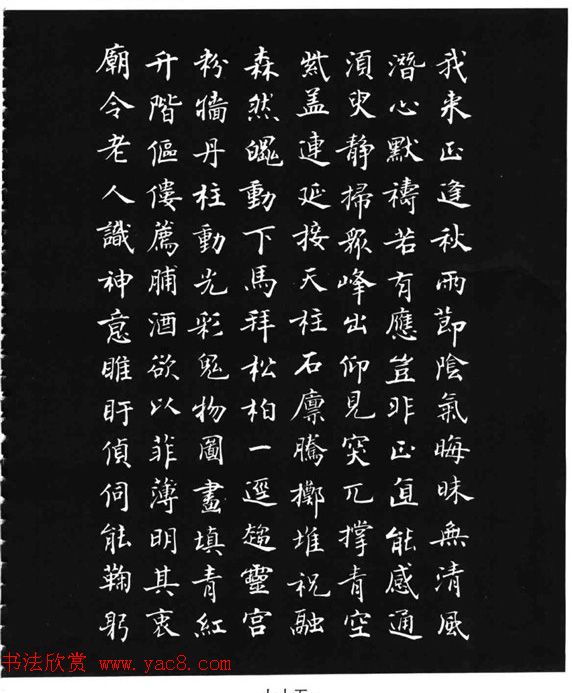 我来正逢秋雨節陰氣晦昧無清風
潛心默禱若有應豈非正直能感通
須臾靜掃眾峰出仰見突兀撑青空
紫盖連延接天柱石廪騰擲堆祝融
森然魄動下馬拜松柏一逕趨靈宮
粉墻丹柱動光彩鬼物圖畫填青紅
升階傴僂薦脯酒欲以菲薄明其衷
廟令老人識神意睢盱偵伺能鞠躬
书法欣赏 www.yac8.com